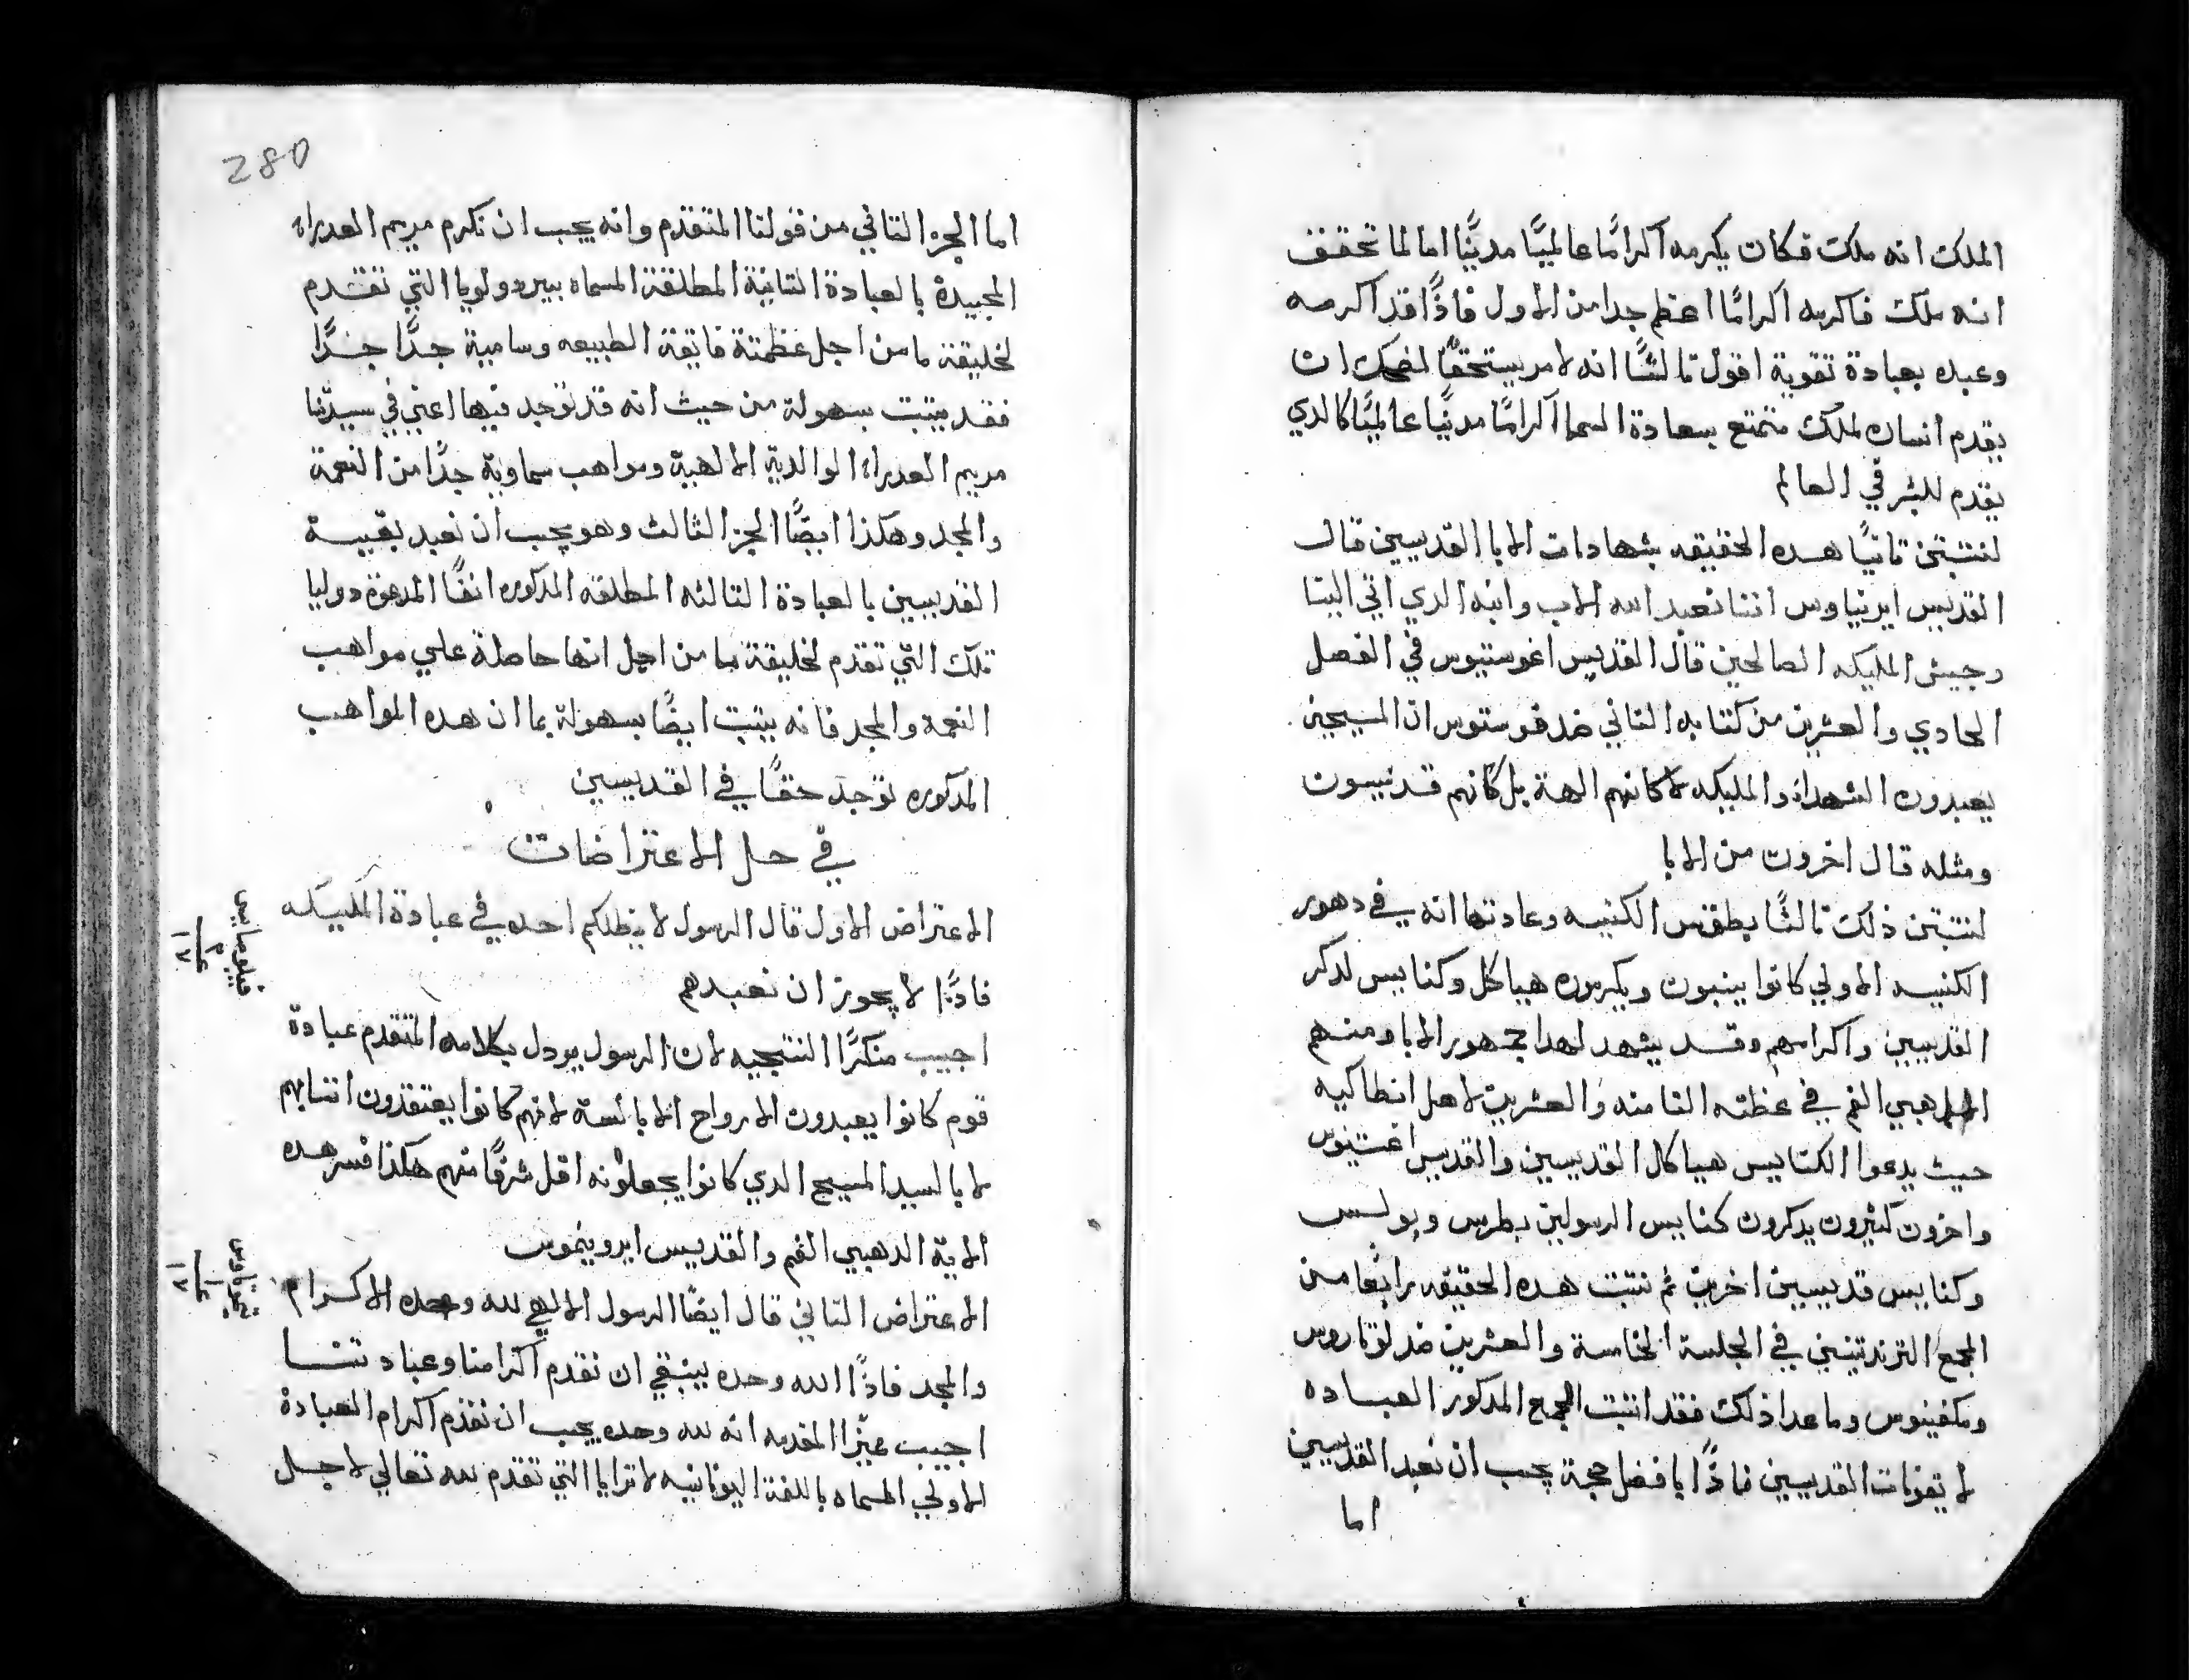 الملك انه ملك فكان يكرمه اكرامًا عالميًا مدنيًا اما لما تحقف
انه ملك فاكرمه اكرامًا اعظم جدا من الاول فاذًا قد اكرمه
وعبده بعبادة تقوية اقول تالثًا انه لامر يستحق المضحك ان
يقدم انسان لملك متمتع بسعادة السما اكرامًا مدنيًا عالميًا كالدي
يقدم للبشر في العالم
لنتبتن تانيًا هده الحقيقه بشهادات الابا القديسين قال
القديس ايريناوس اننا نعبد الله الاب وابنه الدي اتي الينا
وجيش المليكه الصالحين قال القديس اغوستيوس في الفصل
الحادي والعشرين من كتابه التاني ضد فوستوس ان المسيحين
يعبدون الشهداء والمليكه لا كانهم الهة بل كانهم قديسون
ومثله قال اخرون من الابا
لنتبتن ذلك تالثًا بطقس الكنيسه وعادتها انه في دهور
الكنيسه الاولي كانوا يبنون ويكرمون هياكل وكنايس لدكر
القديسين واكرامهم وقد يشهد لهدا جمهور الابا ومنهم
الدهبي الفم في عظته التامنه والعشرين لاهل انطاكيه
حيث يدعوا الكنايس هياكل القديسين والقديس اغستينوس
واخرون كتيرون يدكرون كنايس الرسولين بطرس وبولس
وكنايس قديسين اخرين ثم نتبت هده الحقيقه رابعًا من
المجمع التريدنتيني في الجلسة الخامسة والعشرين ضد لوتاروس
وكلفينوس وما عدا ذلك فقد اتبت المجمع المدكور العباده
لايقونات القديسين فاذًا بافضل حجة يجب ان نعبد القديسين
اما
280
اما الجزء التاني من قولنا المتقدم وانه يجب ان نكرم مريم العدراء
المجيدة بالعبادة التانية المطلقة المسماه بيبردولويا التي تقدم
لخليقة ما من اجل عظمتة فايقة الطبيعه وسامية جدًّا جدًّا
فقد يتبت بسهولة من حيث انه قد توجد فيها اعني في سيدتنا
مريم العدراء الوالدية الالهية ومواهب سماوية جدًّا من النعمة
والمجد وهكذا ايضًا الجز الثالث وهو يجب ان نعبد بقيية
القديسين بالعبادة التالثه المطلقه المدكوره انفًا المدعوة دوليا
تلك التي تقدم لخليقة ما من اجل انها حاصلة علي مواهب
النعمه والمجد فانه يتبت ايضًا بسهولة بما ان هده المواهب
المدكوره توجد حقًا في القديسين
في حل الاعتراضات
الاعتراض الاول قال الرسول لا يظلكم احد في عبادة المليكه
فاذًا لا يجوز ان نعبدهم
اجيب منكرًا النتيجيه لان الرسول يردل بكلامه المتقدم عبادة
قوم كانوا يعبدون الارواح الابالسة لانهم كانوا يعتقدون اننا بهم
لا بالسيد المسيح الدي كانوا يجعلونه اقل شرفًا منهم هكذا فسر هده
الاية الدهبي الفم والقديس ايرونيموس
الاعتراض التاني قال ايضًا الرسول الالهي لله وحده الاكرام
والمجد فاذًا الله وحده ينبغي ان نقدم اكرامنا وعبادتنا
اجيب مميزًا المقدمه انه لله وحده يجب ان نقدم اكرام العبادة
الاولي المسماه باللغة اليونانيه لاترايا التي تقدم لله تعالي لاجل
فيلوصايس
ع ٢
١٧
تيموتاوس
ع ١
١٧